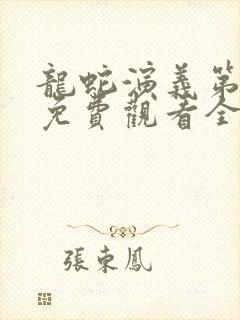 龍蛇演義第
免費觀看全
張東鳳